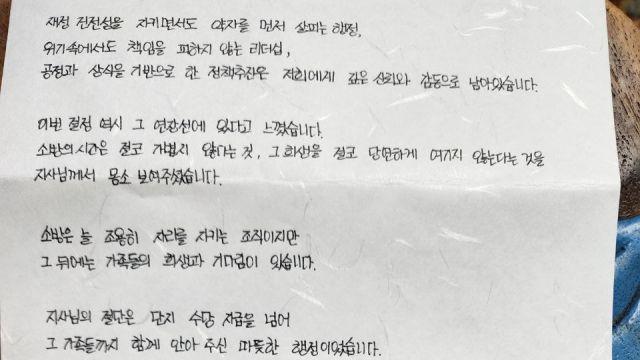 재정 건전성을 지키면서도 약자를 먼저 살피는 행정,
위기속에서도 책임을 피하지 않는 리더십,
공정과 상식을 기반으로 한 정책추진은 저희에게 깊은 신뢰와 감동으로 남아있습니다.
이번 결정 역시 그 연장선에 있다고 느꼈습니다.
소방의 시간은 결코 가볍지 않다는 것, 그 희생을 결코 당연하게 여기지 않는다는 것을
지사님께서 몸소 보여주셨습니다.
소방은 늘 조용히 자리를 지키는 조직이지만
그 뒤에는 가족들의 희생과 기다림이 있습니다.
지사님의 결단은 단지 수당 지급을 넘어
그 가족들까지 함께 안아 주신 따뜻한 행정이었습니다.